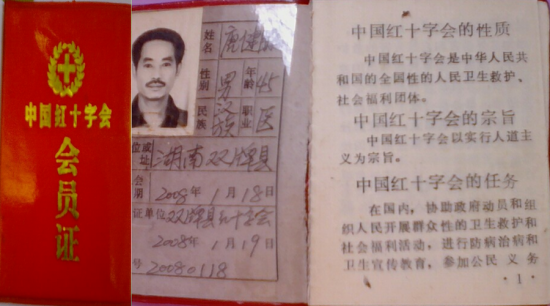 中国红十字会
会员证
姓名
性别 男 年龄 45
民族 汉族 职业 医
湖南双牌县
2008年1月18日
证单位 双牌县红十字会
2008年1月19日
号 20080118
中国红十字会的性质
中国红十字会是中华人民共
和国的全国性的人民卫生救护、
社会福利团体。
中国红十字会的宗旨
中国红十字会以实行人道主
义为宗旨。
中国红十字会的任务
在国内,协助政府动员和组
织人民开展群众性的卫生救护和
社会福利活动,进行防病治病和
卫生宣传教育,参加公民义务
·1·